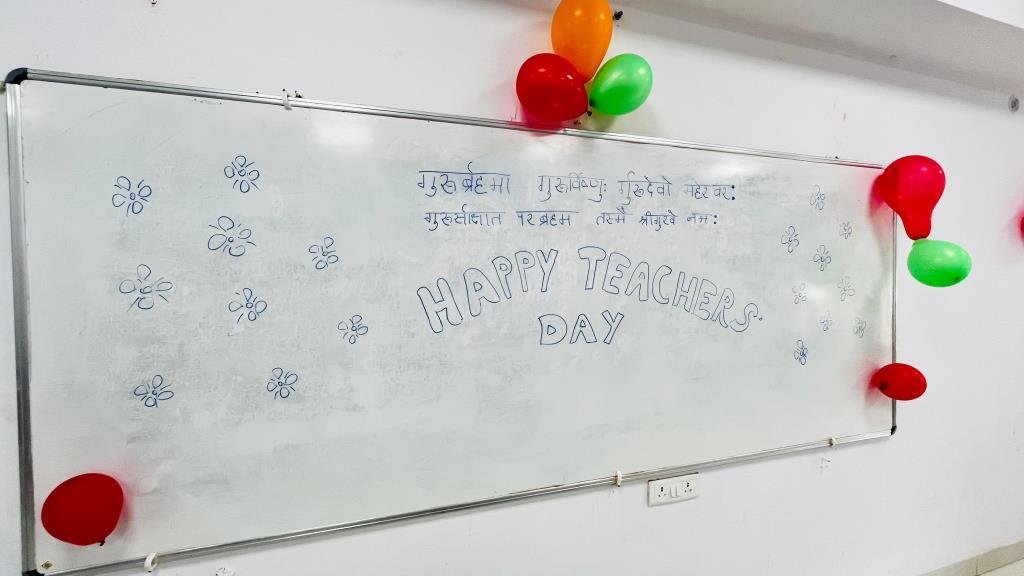 गुरूर्ब्रहमा गुरूर्विष्णुः र्गुरूदेवो महेरवर:
गुरूर्साक्षात परब्रहम तस्मै श्रीगुरवे नम:
HAPPY TEACHERS.
DAY